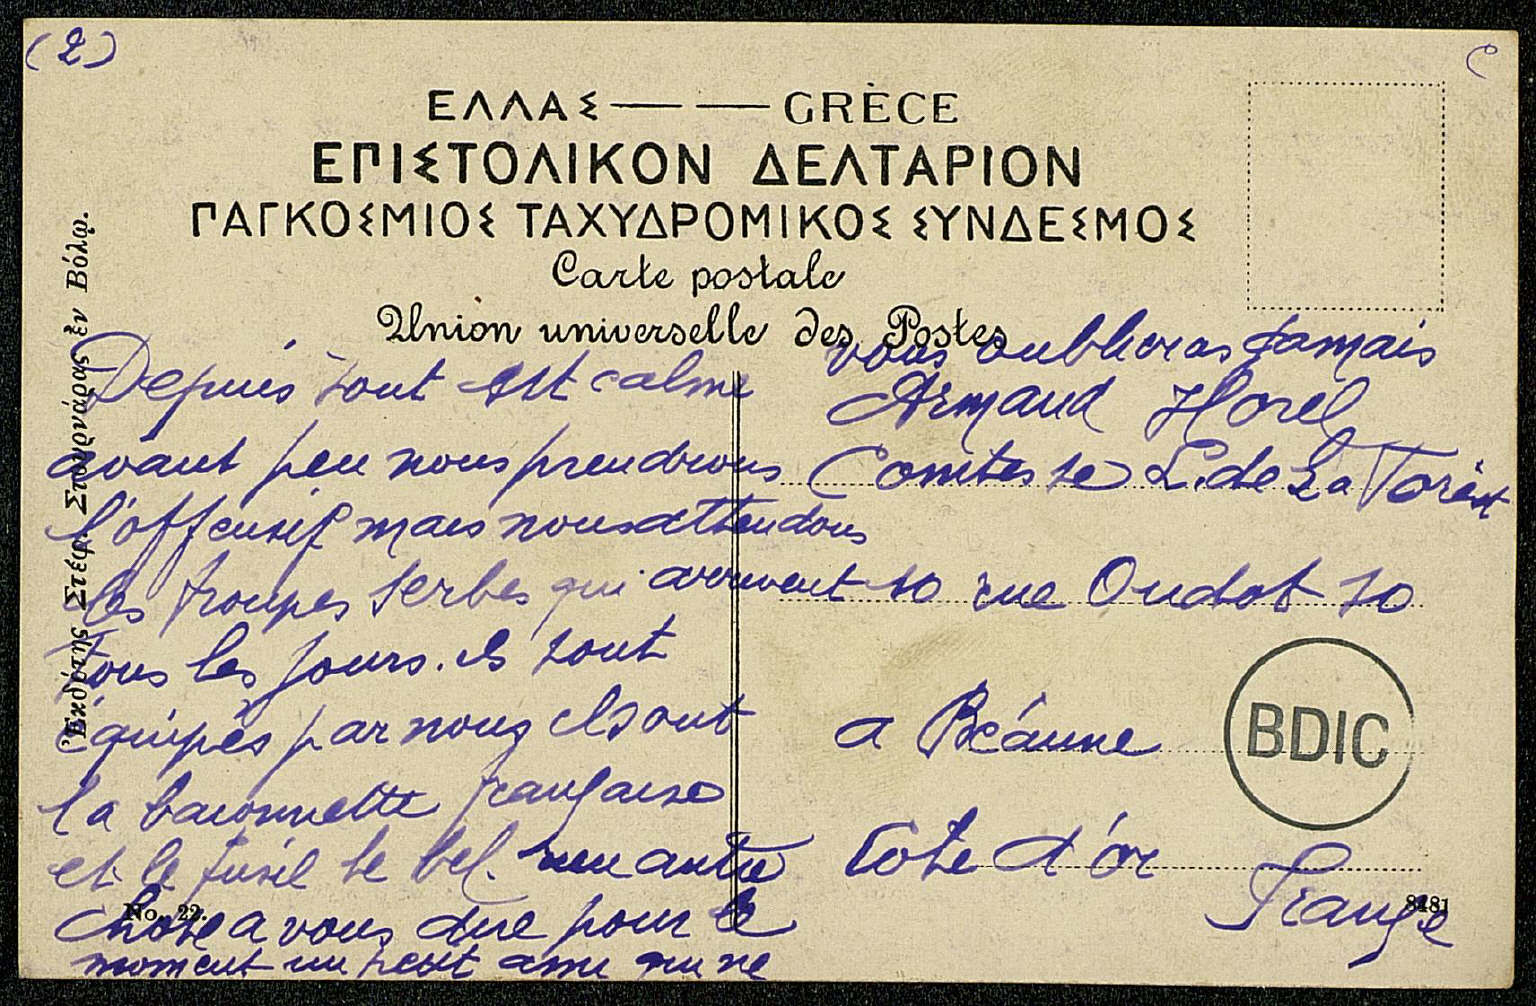 (2)
ΕΛΛΑΣ — — GRÈCE
ΕΠΙΣΤΟΛΙΚΟΝ ΔΕΛΤΑΡΙΟΝ
ΠΑΓΚΟΣΜΙΟΣ ΤΑΧΥΔΡΟΜΙΚΟΣ ΣΥΝΔΕΣΜΟΣ
Carte postale
Union universelle des Postes
Ἐκδότης Στέφ. Στουρνάρας ἐν Βόλῳ.
Depuis tout est calme
avant peu nous prendrons
l'offensif mais nous attendons
les troupes serbes qui arrivent
tous les jours. ils sont
équipés par nous ils ont
la baronnette française
et le fusil le bel. autre
chose a vous dire pour le
moment un petit ami qui ne
vous oublieras jamais
Armand Horel
Comtesse L. de La Forest
10 rue Oudot 10
a Béaune
Cote d'or
France
BDIC
No. 22.
8481